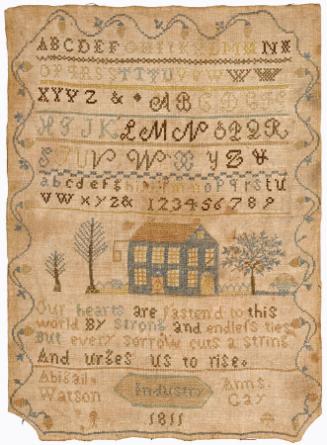 ABCDEFGHIJKLMN
OPQRSSTTTUVVWWW
XYYZ & ABCDEFG
HIJKLMNOPQR
STUVWXYZ&
abcdefghijklmnopqrstu
vwxyz& 123456789
Our hearts are fasten'd to this
world By strong and endless ties
But every sorrow cuts a string
And urges us to rise.
Abigail Watson
Industry
Ann S. Gay
1811